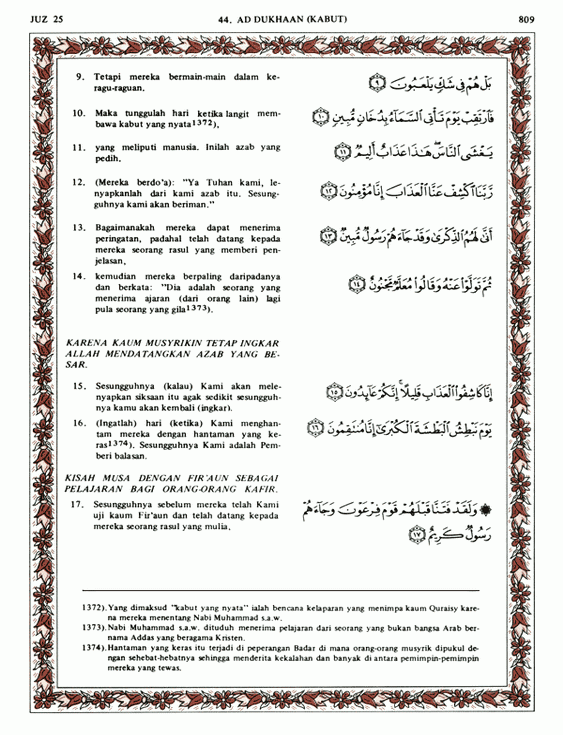 JUZ 25
44. AD DUKHAAN (KABUT)
809
9. Tetapi mereka bermain-main dalam ke-
ragu-raguan.
بَلْ هُمْ فِي شَكٍّ يَلْعَبُونَ ۝٩
10. Maka tunggulah hari ketika langit mem-
bawa kabut yang nyata1372),
فَٱرْتَقِبْ يَوْمَ تَأْتِى ٱلسَّمَآءُ بِدُخَانٍ مُّبِينٍ ۝١٠
11. yang meliputi manusia. Inilah azab yang
pedih.
يَغْشَى ٱلنَّاسَ هَٰذَا عَذَابٌ أَلِيمٌ ۝١١
12. (Mereka berdo'a): "Ya Tuhan kami, le-
nyapkanlah dari kami azab itu. Sesung-
guhnya kami akan beriman."
رَّبَّنَا ٱكْشِفْ عَنَّا ٱلْعَذَابَ إِنَّا مُؤْمِنُونَ ۝١٢
13. Bagaimanakah mereka dapat menerima
peringatan, padahal telah datang kepada
mereka seorang rasul yang memberi pen-
jelasan,
أَنَّىٰ لَهُمُ ٱلذِّكْرَىٰ وَقَدْ جَآءَهُمْ رَسُولٌ مُّبِينٌ ۝١٣
14. kemudian mereka berpaling daripadanya
dan berkata: "Dia adalah seorang yang
menerima ajaran (dari orang lain) lagi
pula seorang yang gila1373).
ثُمَّ تَوَلَّوْا۟ عَنْهُ وَقَالُوا۟ مُعَلَّمٌ مَّجْنُونٌ ۝١٤
KARENA KAUM MUSYRIKIN TETAP INGKAR
ALLAH MENDATANGKAN AZAB YANG BE-
SAR.
15. Sesungguhnya (kalau) Kami akan mele-
nyapkan siksaan itu agak sedikit sesunggu-
hnya kamu akan kembali (ingkar).
إِنَّا كَاشِفُوا۟ ٱلْعَذَابِ قَلِيلًا ۚ إِنَّكُمْ عَآئِدُونَ ۝١٥
16. (Ingatlah) hari (ketika) Kami menghan-
tam mereka dengan hantaman yang ke-
ras1374). Sesungguhnya Kami adalah Pem-
beri balasan.
يَوْمَ نَبْطِشُ ٱلْبَطْشَةَ ٱلْكُبْرَىٰٓ إِنَّا مُنتَقِمُونَ ۝١٦
KISAH MUSA DENGAN FIR'AUN SEBAGAI
PELAJARAN BAGI ORANG-ORANG KAFIR.
17. Sesungguhnya sebelum mereka telah Kami
uji kaum Fir'aun dan telah datang kepada
mereka seorang rasul yang mulia,
۞ وَلَقَدْ فَتَنَّا قَبْلَهُمْ قَوْمَ فِرْعَوْنَ وَجَآءَهُمْ
رَسُولٌ كَرِيمٌ ۝١٧
1372).Yang dimaksud "kabut yang nyata" ialah bencana kelaparan yang menimpa kaum Quraisy kare-
na mereka menentang Nabi Muhammad s.a.w.
1373).Nabi Muhammad s.a.w. dituduh menerima pelajaran dari seorang yang bukan bangsa Arab ber-
nama Addas yang beragama Kristen.
1374).Hantaman yang keras itu terjadi di peperangan Badar di mana orang-orang musyrik dipukul de-
ngan sehebat-hebatnya sehingga menderita kekalahan dan banyak di antara pemimpin-pemimpin
mereka yang tewas.